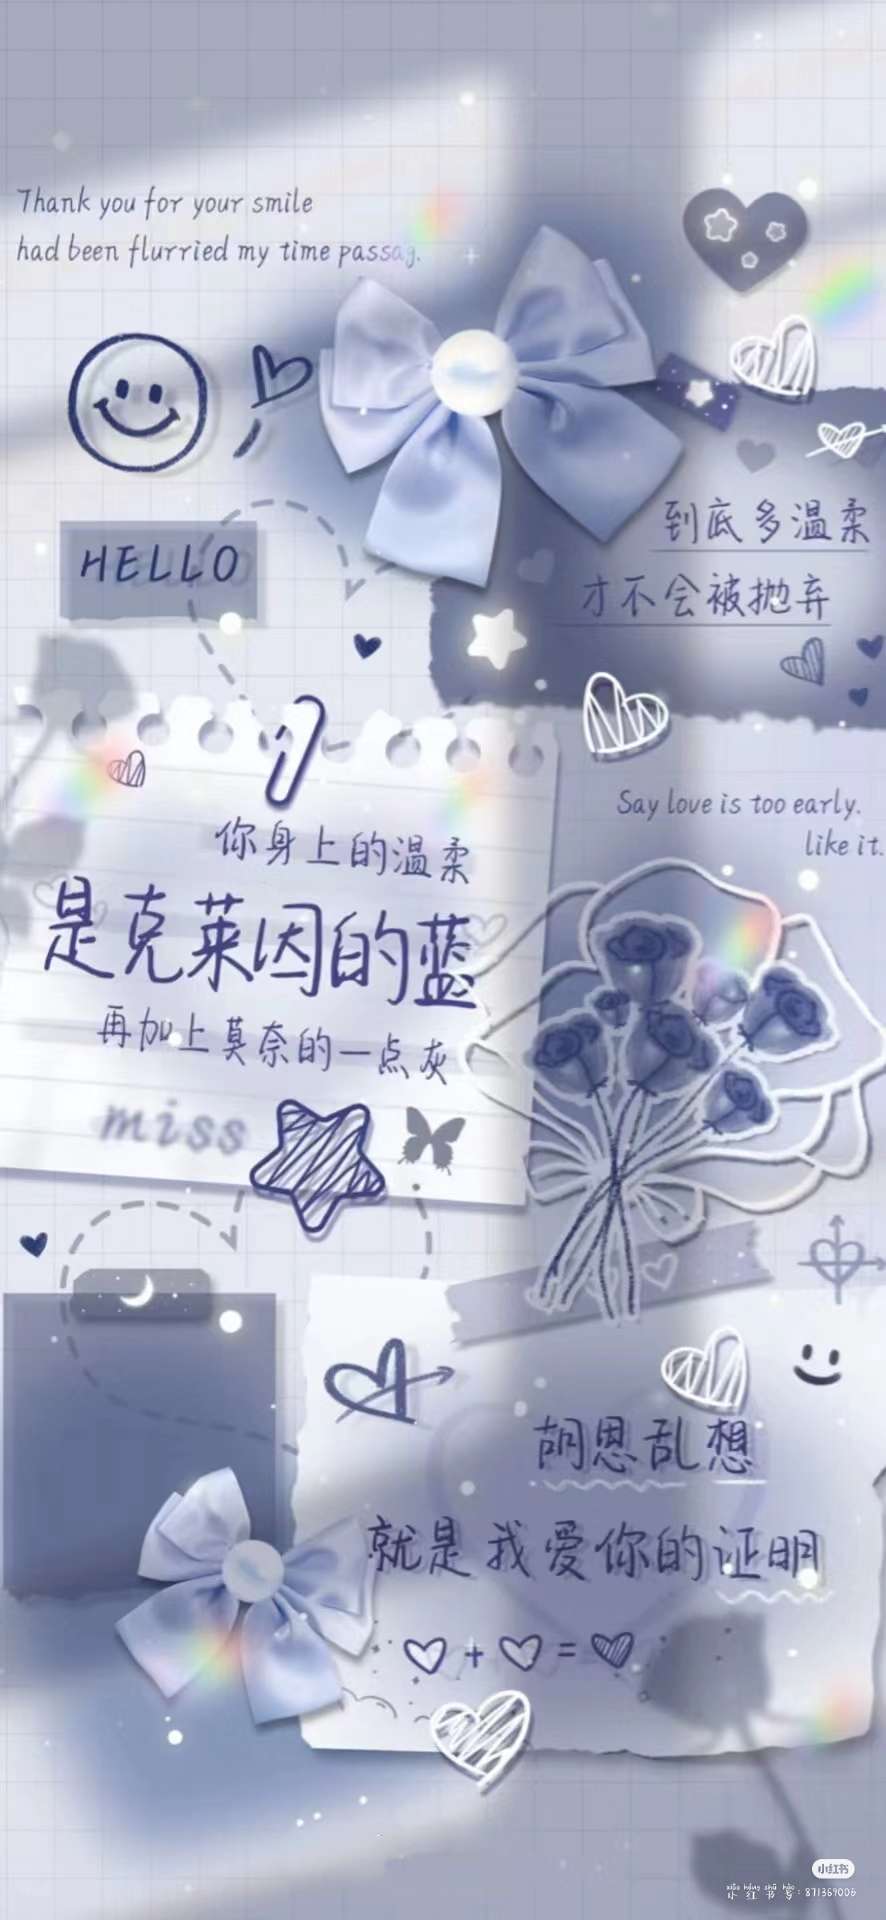 Thank you for your smile
had been flurried my time passag.
HELLO
到底多温柔
才不会被抛弃
Say love is too early.
like it.
你身上的温柔
是克莱因的蓝
再加上莫奈的一点灰
miss
胡思乱想
就是我爱你的证明
小红书
xiǎo hóng shū hào
小红书号:871369006